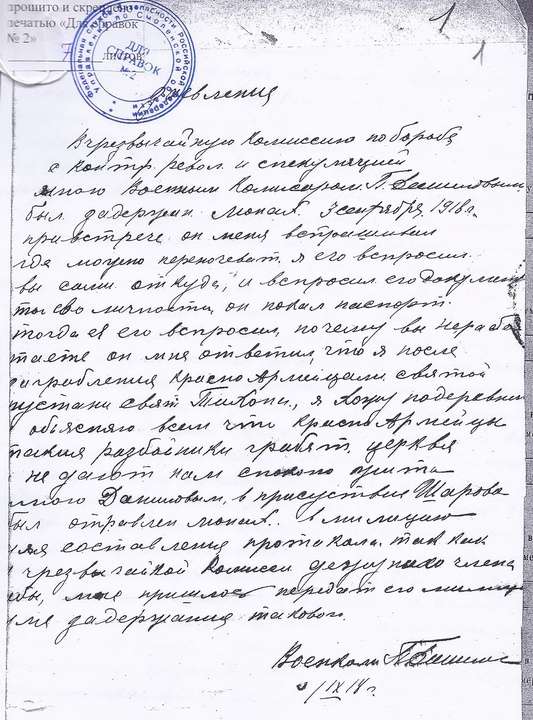 прошито и скреплено
печатью «Для справок
№ 2»
7 листов
Федеральная служба безопасности Российской Федерации
Управление по Смоленской области
ДЛЯ
СПРАВОК
№ 2
1
1
Заявления
В чрезвычайную Комиссию по борьбе
с контр.револ. и спекуляцией
мною Военным Комисаром П.
был задержан монах 3 сентября 1918 г.
при встрече он меня встрашивал
где можно переночеват. я его вспросил
вы сами откуда, и вспросил его докумен
ты его личности, он показал паспорт.
тогда я его вспросил, почему вы нерабо
таете он мне ответил, что я после
ограбления красно Армейцами святой
пустани свят Тихони, я хожу подеревни
и обясняю всем что красно Армейцы
такия разбойники грабят церквя
и не дают нам спокою жита
мною Даниловым, в присуствия Шарова
был отправлен монах. в милицию
для составления протакола. так как
в чрезвычайной Комиссии дежурнаго члена
мне пришлос передат его
для задержания такового.
Военком П.
/IX 18 г.